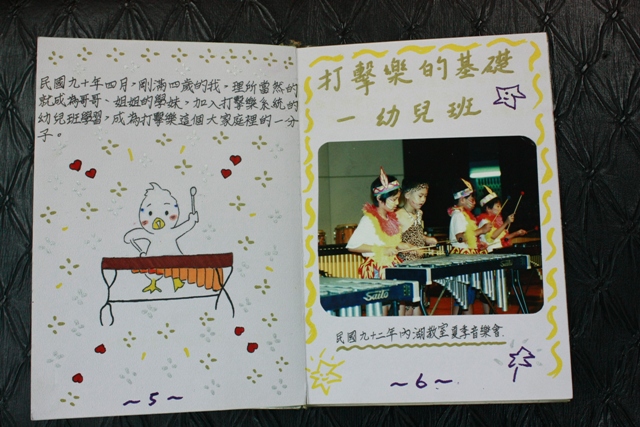 民國九十年四月，剛滿四歲的我，理所當然的
就成為哥哥、姐姐的學妹，加入打擊樂系統的
幼兒班學習，成為打擊樂這個大家庭裡的一分
子。
~5~
打擊樂的基礎
—幼兒班
Saito
民國九十二年內湖教室夏季音樂會
~6~